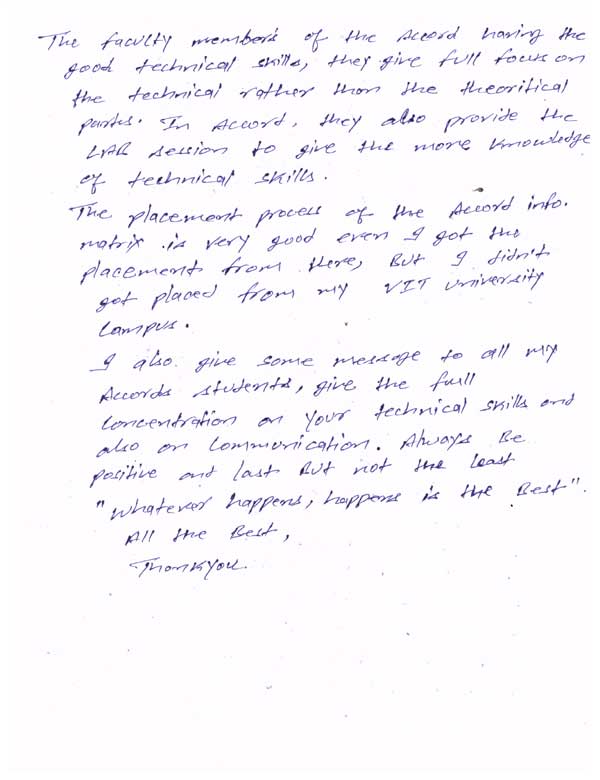 The faculty member's of the Accord having the
good technical skills, they give full focus on
the technical rather than the theoritical
parts. In Accord, they also provide the
LAB session to give the more knowledge
of technical skills.
The placement process of the Accord info.
matrix is very good even I got the
placement from there, But I didn't
got placed from my VIT university
Campus.
I also give some message to all my
Accords students, give the full
concentration on your technical skills and
also on Communication. Always Be
positive and last But not the least
"whatever happens, happens is the Best".
All the Best,
Thankyou.